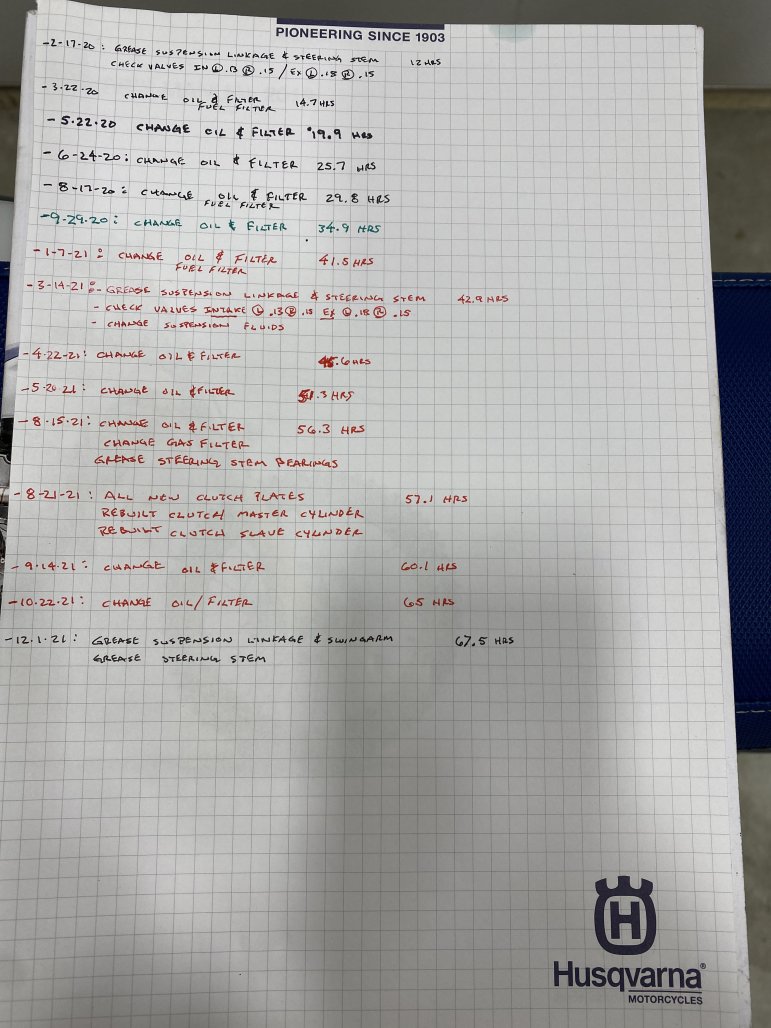 PIONEERING SINCE 1903
-2-17-20: GREASE SUSPENSION LINKAGE & STEERING STEM 12 HRS
CHECK VALVES IN Ⓛ .13 Ⓡ .15 / EX Ⓛ .18 Ⓡ .15
-3.22.20 CHANGE OIL & FILTER 14.7 HRS
FUEL FILTER
-5.22.20 CHANGE OIL & FILTER 19.9 HRS
-6-24-20: CHANGE OIL & FILTER 25.7 HRS
-8-17-20: CHANGE OIL & FILTER 29.8 HRS
FUEL FILTER
-9-29.20: CHANGE OIL & FILTER 34.9 HRS
-1-7-21: CHANGE OIL & FILTER 41.5 HRS
FUEL FILTER
-3-14-21: - GREASE SUSPENSION LINKAGE & STEERING STEM 42.9 HRS
- CHECK VALVES INTAKE Ⓛ .13 Ⓡ .15 EX Ⓛ .18 Ⓡ .15
- CHANGE SUSPENSION FLUIDS
-4.22-21: CHANGE OIL & FILTER 45.6 HRS
-5.20.21: CHANGE OIL & FILTER 51.3 HRS
-8.15.21: CHANGE OIL & FILTER 56.3 HRS
CHANGE GAS FILTER
GREASE STEERING STEM BEARINGS
-8-21-21: ALL NEW CLUTCH PLATES 57.1 HRS
REBUILT CLUTCH MASTER CYLINDER
REBUILT CLUTCH SLAVE CYLINDER
-9.14.21: CHANGE OIL & FILTER 60.1 HRS
-10.22.21: CHANGE OIL/FILTER 65 HRS
-12.1.21: GREASE SUSPENSION LINKAGE & SWINGARM 67.5 HRS
GREASE STEERING STEM
H
Husqvarna®
MOTORCYCLES